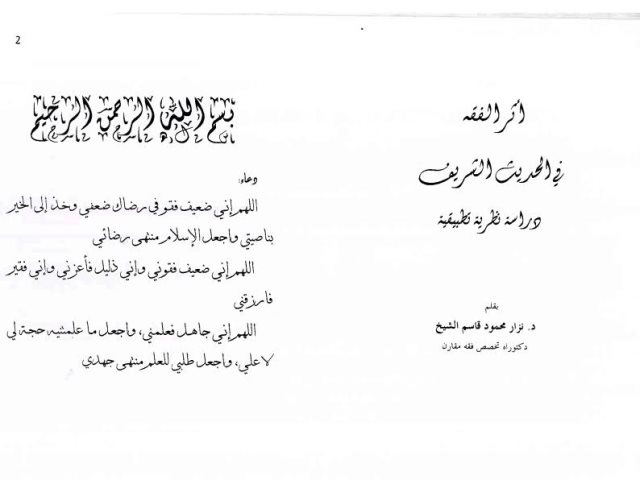 أثر الفقه
في الحديث الشريف
دراسة نظرية تطبيقية
بقلم
د. نزار محمود قاسم الشيخ
دكتوراه تخصص فقه مقارن
2
بسم الله الرحمن الرحيم
دعاء:
اللهم إني ضعيف فقو في رضاك ضعفي وخذ إلى الخير
بناصيتي واجعل الإسلام منتهى رضائي
اللهم إني ضعيف فقوني وإني ذليل فأعزني وإني فقير
فارزقني
اللهم إني جاهل فعلمني، واجعل ما علمتنيه حجة لي
لا علي، واجعل طلبي للعلم منتهى جهدي